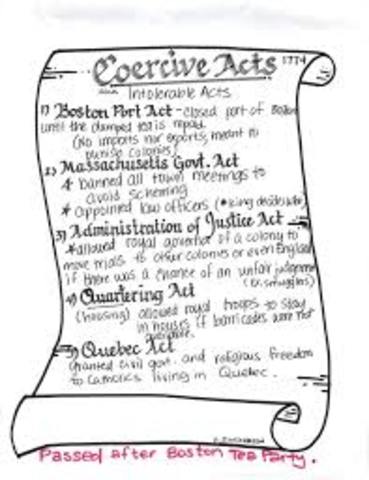 Coercive Acts 1774
aka Intolerable Acts
1) Boston Port Act - closed port of Boston
until the dumped tea is repaid.
(No imports nor exports, meant to
punish colonies)
2) Massachusetts Govt. Act
* banned all town meetings to
avoid scheming
* appointed law officers (*king decides who)
3) Administration of Justice Act
*allowed royal governor of a colony to
move trials to other colonies or even England
if there was a chance of an unfair judgement
(ex. smugglers)
4) Quartering Act
(housing) allowed royal troops to stay
in houses if barricades were not
available.
5) Quebec Act
granted civil govt. and religious freedom
to Catholics living in Quebec.
Passed after Boston Tea Party.